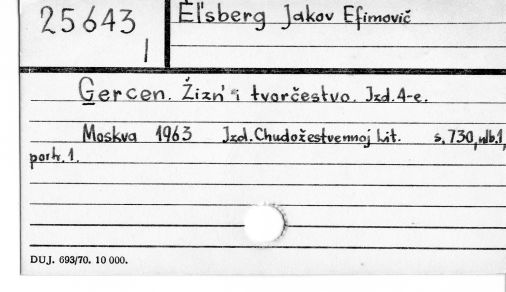 25643
I
Èl'sberg Jakov Efimovič
Gercen. Žizn' i tvorčestvo. Izd. 4-e.
Moskva 1963 Izd. Chudožestvennoj Lit. s. 730, nlb. 1,
portr. 1.
DUJ. 693/70. 10 000.